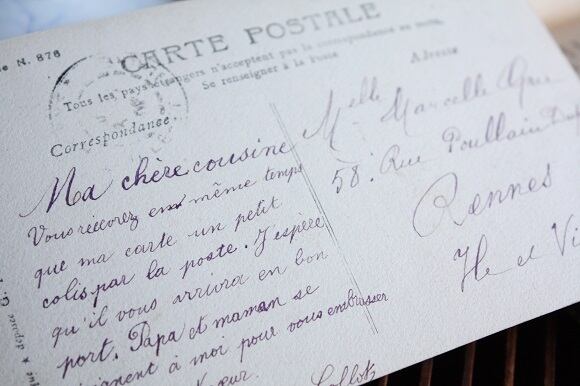 N. 876
CARTE POSTALE
Tous les pays étrangers n'acceptent pas la correspondance au
Se renseigner à la Poste
Correspondance
Adresse
Ma chère cousine
Vous recevrez en même temps
que ma carte un petit
colis par la poste. J'espère
qu'il vous arrivra en bon
port. Papa et maman se
à moi pour vous embrasser
Melle Marcelle
58. Rue Poullain
Rennes
Ile et Vi
déposée G.